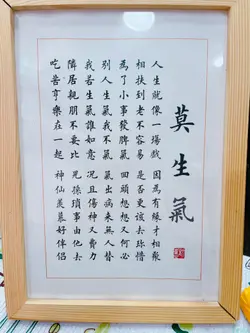 莫生氣
人生就像一場戲 因為有緣才相聚
相扶到老不容易 是否更該去珍惜
為了小事發脾氣 回頭想想又何必
別人生氣我不氣 氣出病來無人替
我若生氣誰如意 況且傷神又費力
鄰居親朋不要比 兒孫瑣事由他去
吃苦享樂在一起 神仙羨慕好伴侶